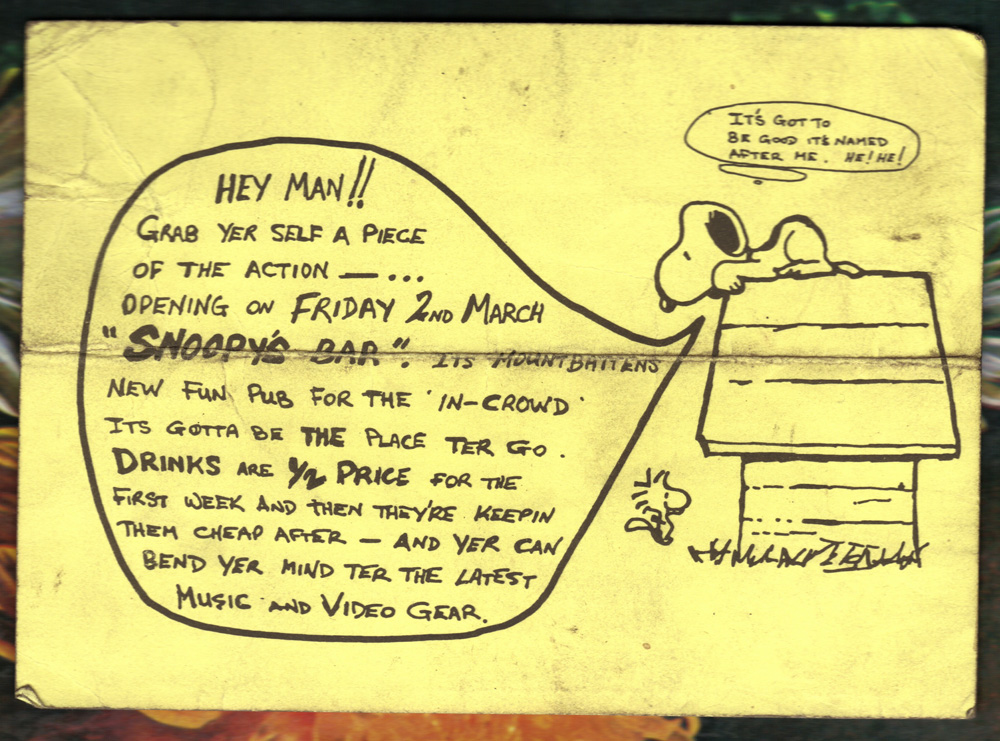 IT'S GOT TO
BE GOOD IT'S NAMED
AFTER ME. HE! HE!
HEY MAN!!
GRAB YER SELF A PIECE
OF THE ACTION — ...
OPENING ON FRIDAY 2ND MARCH
"SNOOPY'S BAR". ITS MOUNTBATTENS
NEW FUN PUB FOR THE 'IN-CROWD'
ITS GOTTA BE THE PLACE TER GO.
DRINKS ARE 1/2 PRICE FOR THE
FIRST WEEK AND THEN THEY'RE KEEPIN
THEM CHEAP AFTER — AND YER CAN
BEND YER MIND TER THE LATEST
MUSIC AND VIDEO GEAR.